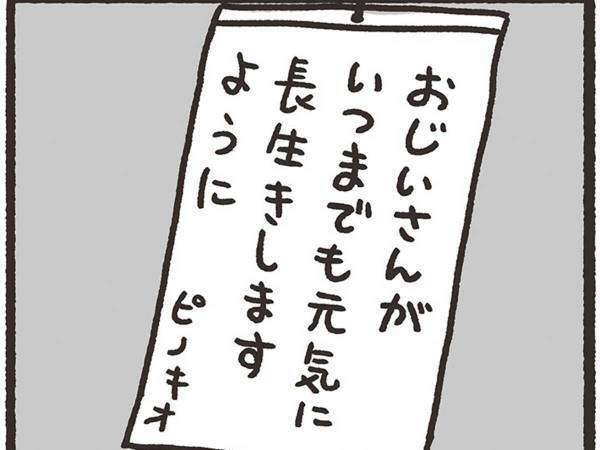 おじいさんが
いつまでも元気に
長生きします
ように
ピノキオ